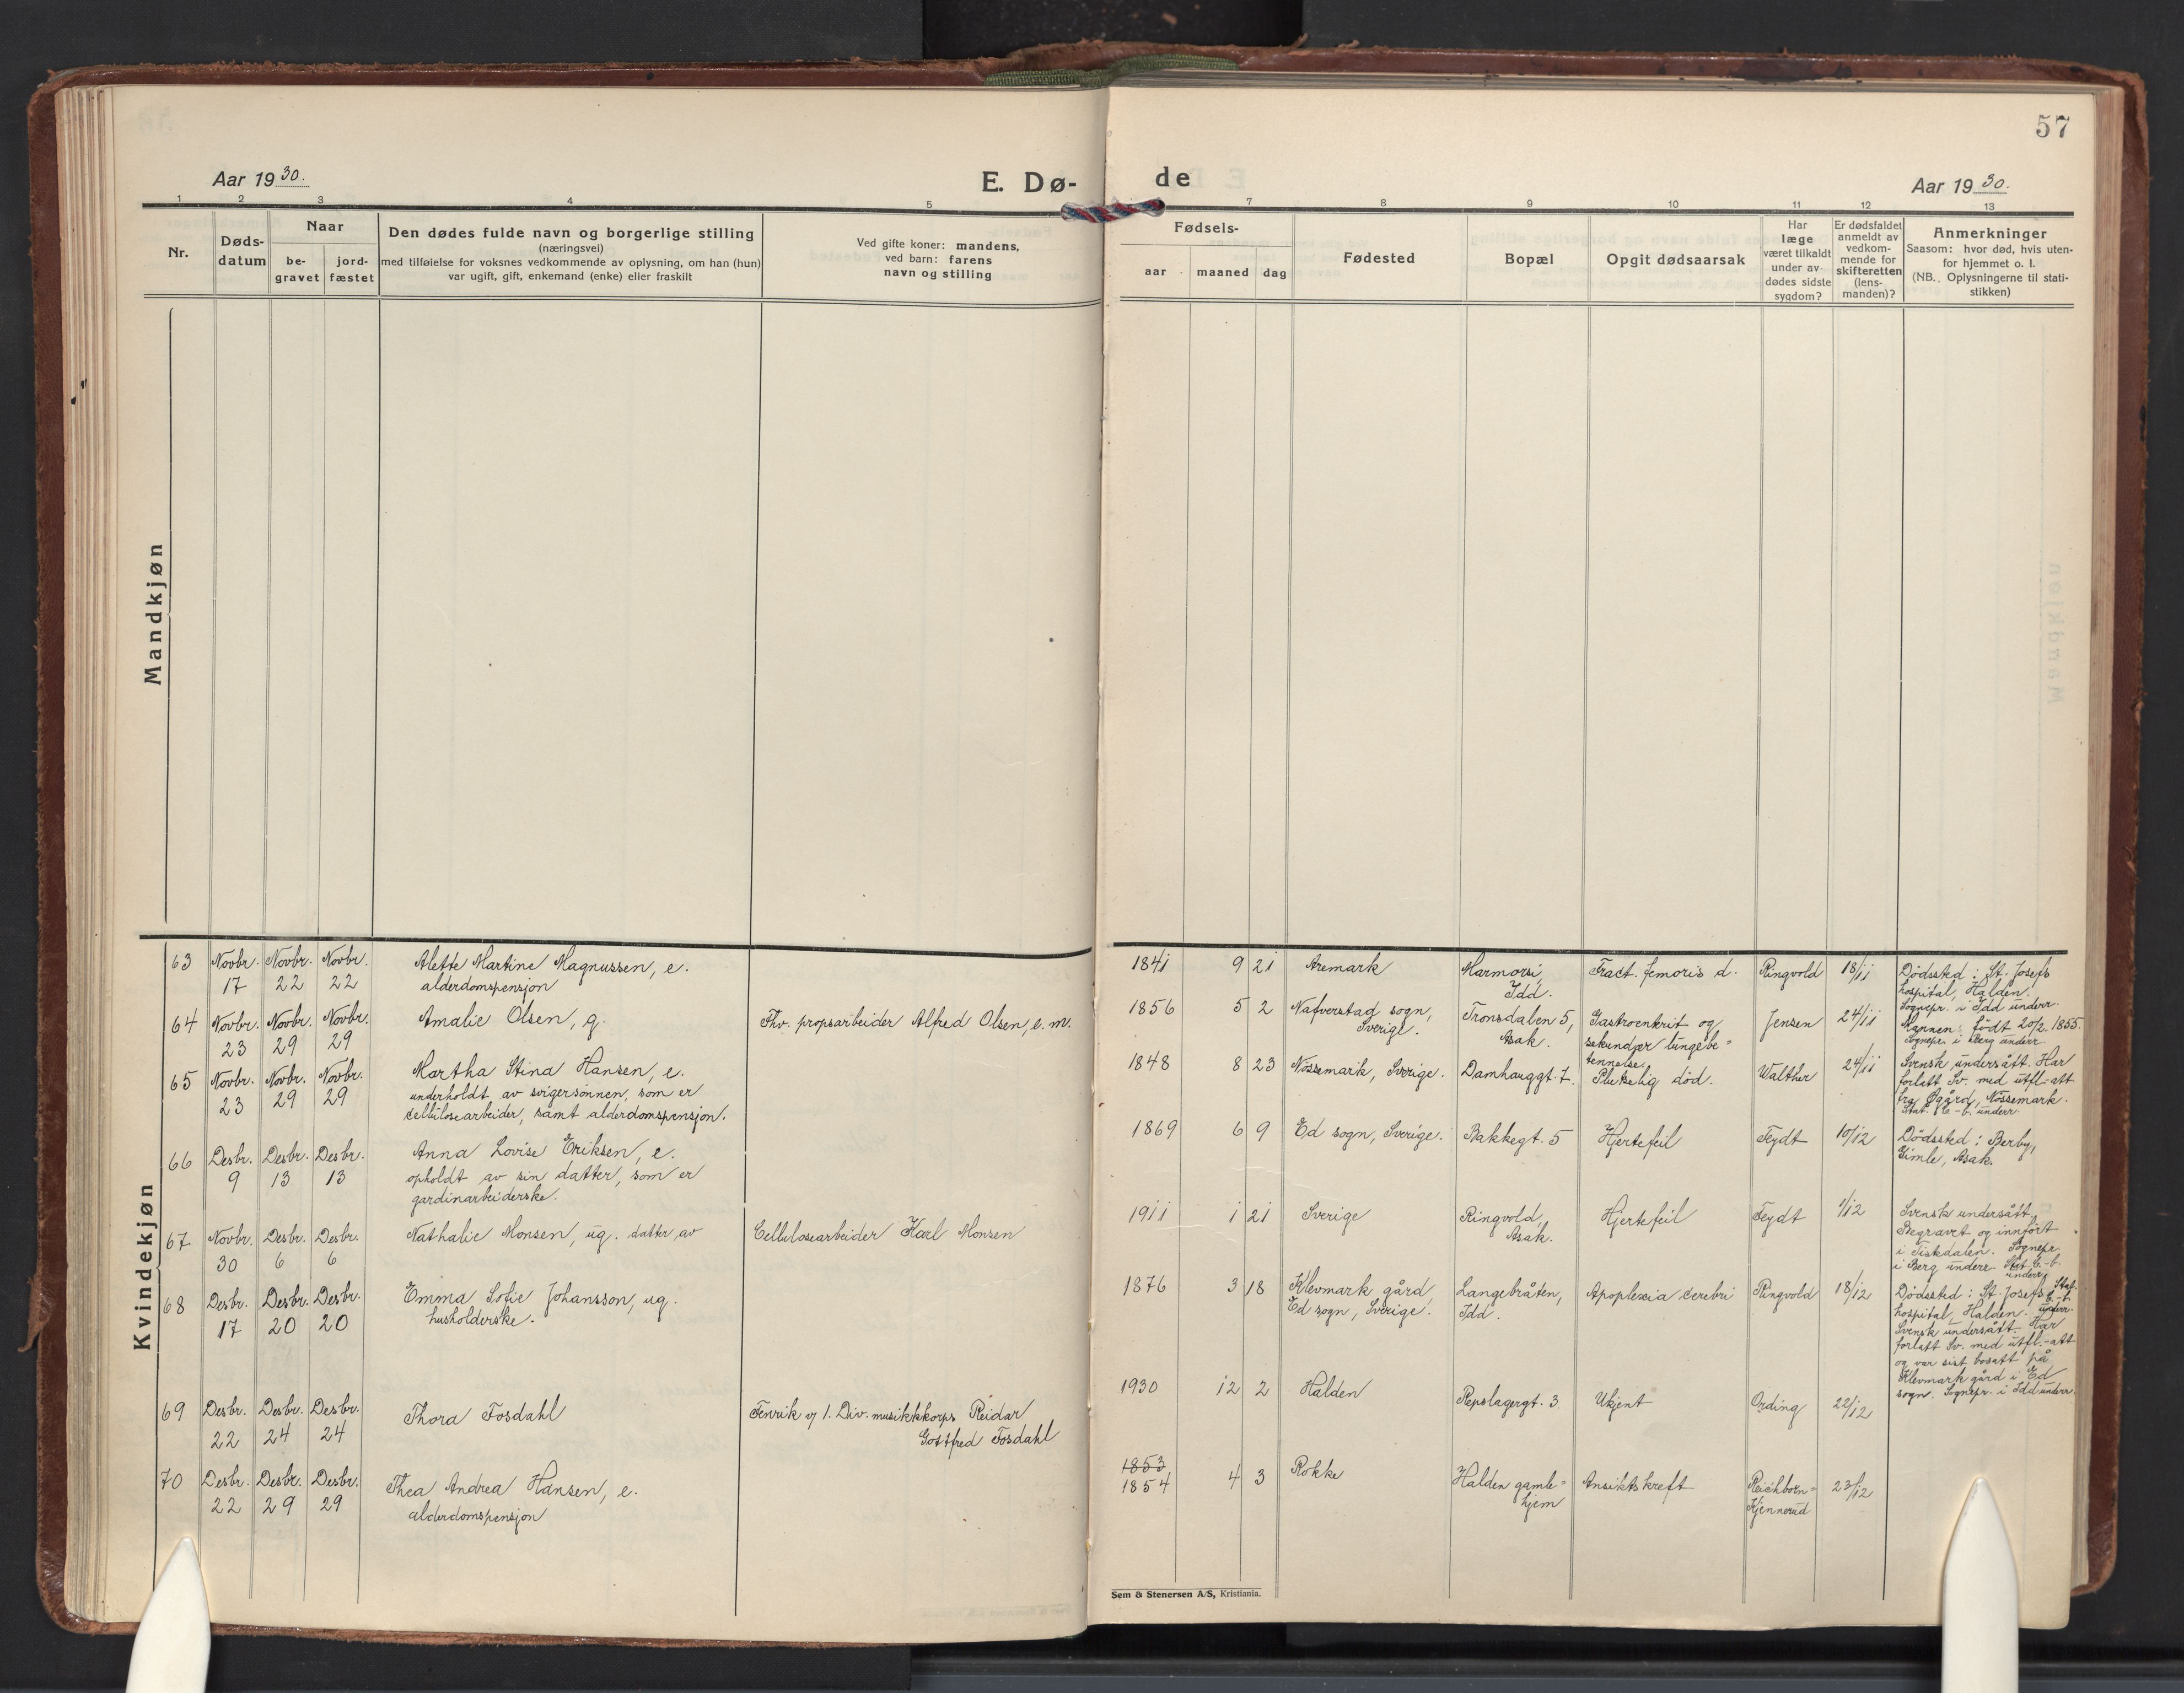 57
Aar 1930.
E. Dø-
de
Aar 1930.
1 2 3 4 5 7 8 9 10 11 12 13
Nr.
Døds-
datum
Naar
be-
gravet
jord-
fæstet
Den dødes fulde navn og borgerlige stilling
(næringsvei)
med tilføielse for voksnes vedkommende av oplysning, om han (hun)
var ugift, gift, enkemand (enke) eller fraskilt
Ved gifte koner: mandens,
ved barn: farens
navn og stilling
Fødsels-
aar maaned dag
Fødested
Bopæl
Opgit dødsaarsak
Har
læge
været tilkaldt
under av-
dødes sidste
sygdom?
Er dødsfaldet
anmeldt av
vedkom-
mende for
skifteretten
(lens-
manden)?
Anmerkninger
Saasom: hvor død, hvis uten-
for hjemmet o. l.
(NB. Oplysningerne til stati-
stikken)
Mandkjøn
Kvindekjøn
63 Novbr. Novbr. Novbr.
17 22 22
Alette Martine Magnussen, e.
alderdomspensjon
1841 9 21 Aremark
Marmorsi,
Idd.
Fract. femoris d.
Ringvold 18/11
Dødssted: St. Josefs
hospital, Halden.
Sognepr. i Idd underr.
64 Novbr. Novbr. Novbr.
23 29 29
Amalie Olsen, g.
Fhv. propsarbeider Alfred Olsen, e. m.
1856 5 2 Nafverstad sogn,
Sverige.
Tronsdalen 5,
Asak.
Gastroenterit og
sekundær lungebe-
tennelse
Jensen 24/11
Mannen: født 20/2 1855.
Sognepr. i Berg underr.
65 Novbr. Novbr. Novbr.
23 29 29
Martha Stina Hansen, e.
underholdt av svigersønnen, som er
cellulosearbeider, samt alderdomspensjon.
1848 8 23 Nössemark, Sverige.
Damhauggt. 7.
Plutselig död.
Walther 24/11
Svensk undersått. Har
forlatt Sv. med utfl.-att
fra Øgård, Nössemark.
Stat. C.-b. underr.
66 Desbr. Desbr. Desbr.
9 13 13
Anna Lovise Eriksen, e.
opholdt av sin datter, som er
gardinarbeiderske.
1869 6 9 Ed sogn, Sverige.
Bakkegt. 5
Hjertefeil
Feydt 10/12
Dödssted: Berby,
Gimle, Asak.
67 Novbr. Desbr. Desbr.
30 6 6
Nathalie Monsen, ug. datter av
Cellulosearbeider Karl Monsen
1911 1 21 Sverige
Ringvold,
Asak.
Hjertefeil
Feydt 1/12
Svensk undersått,
Begravet og innfört
i Tistedalen. Sognepr.
i Berg underr. Stat. C.-b.
underr.
68 Desbr. Desbr. Desbr.
17 20 20
Emma Sofie Johansson, ug.
husholderske.
1876 3 18 Klevmark gård,
Ed sogn, Sverige.
Langebråten,
Idd.
Apoplexia cerebri
Ringvold 18/12
Dödssted: St. Josefs
hospital, Halden.
Stat.
C.-b.
underr.
Svensk undersått. Har
forlatt Sv. med utfl.-att
og var sist bosatt på
Klevmark gård i Ed
sogn. Sognepr. i Idd underr.
69 Desbr. Desbr. Desbr.
22 24 24
Thora Fosdahl
Fenrik v/ 1. Div. musikkkorps Reidar
Gottfred Fosdahl
1930 12 2 Halden
Repslagergt. 3
Ukjent
Ording 22/12
70 Desbr. Desbr. Desbr.
22 29 29
Thea Andrea Hansen, e.
alderdomspensjon
1853
1854 4 3 Rokke
Halden gamle-
hjem
Ansiktskreft
Reichborn-
Kjennerud
23/12
Sem & Stenersen A/S, Kristiania.